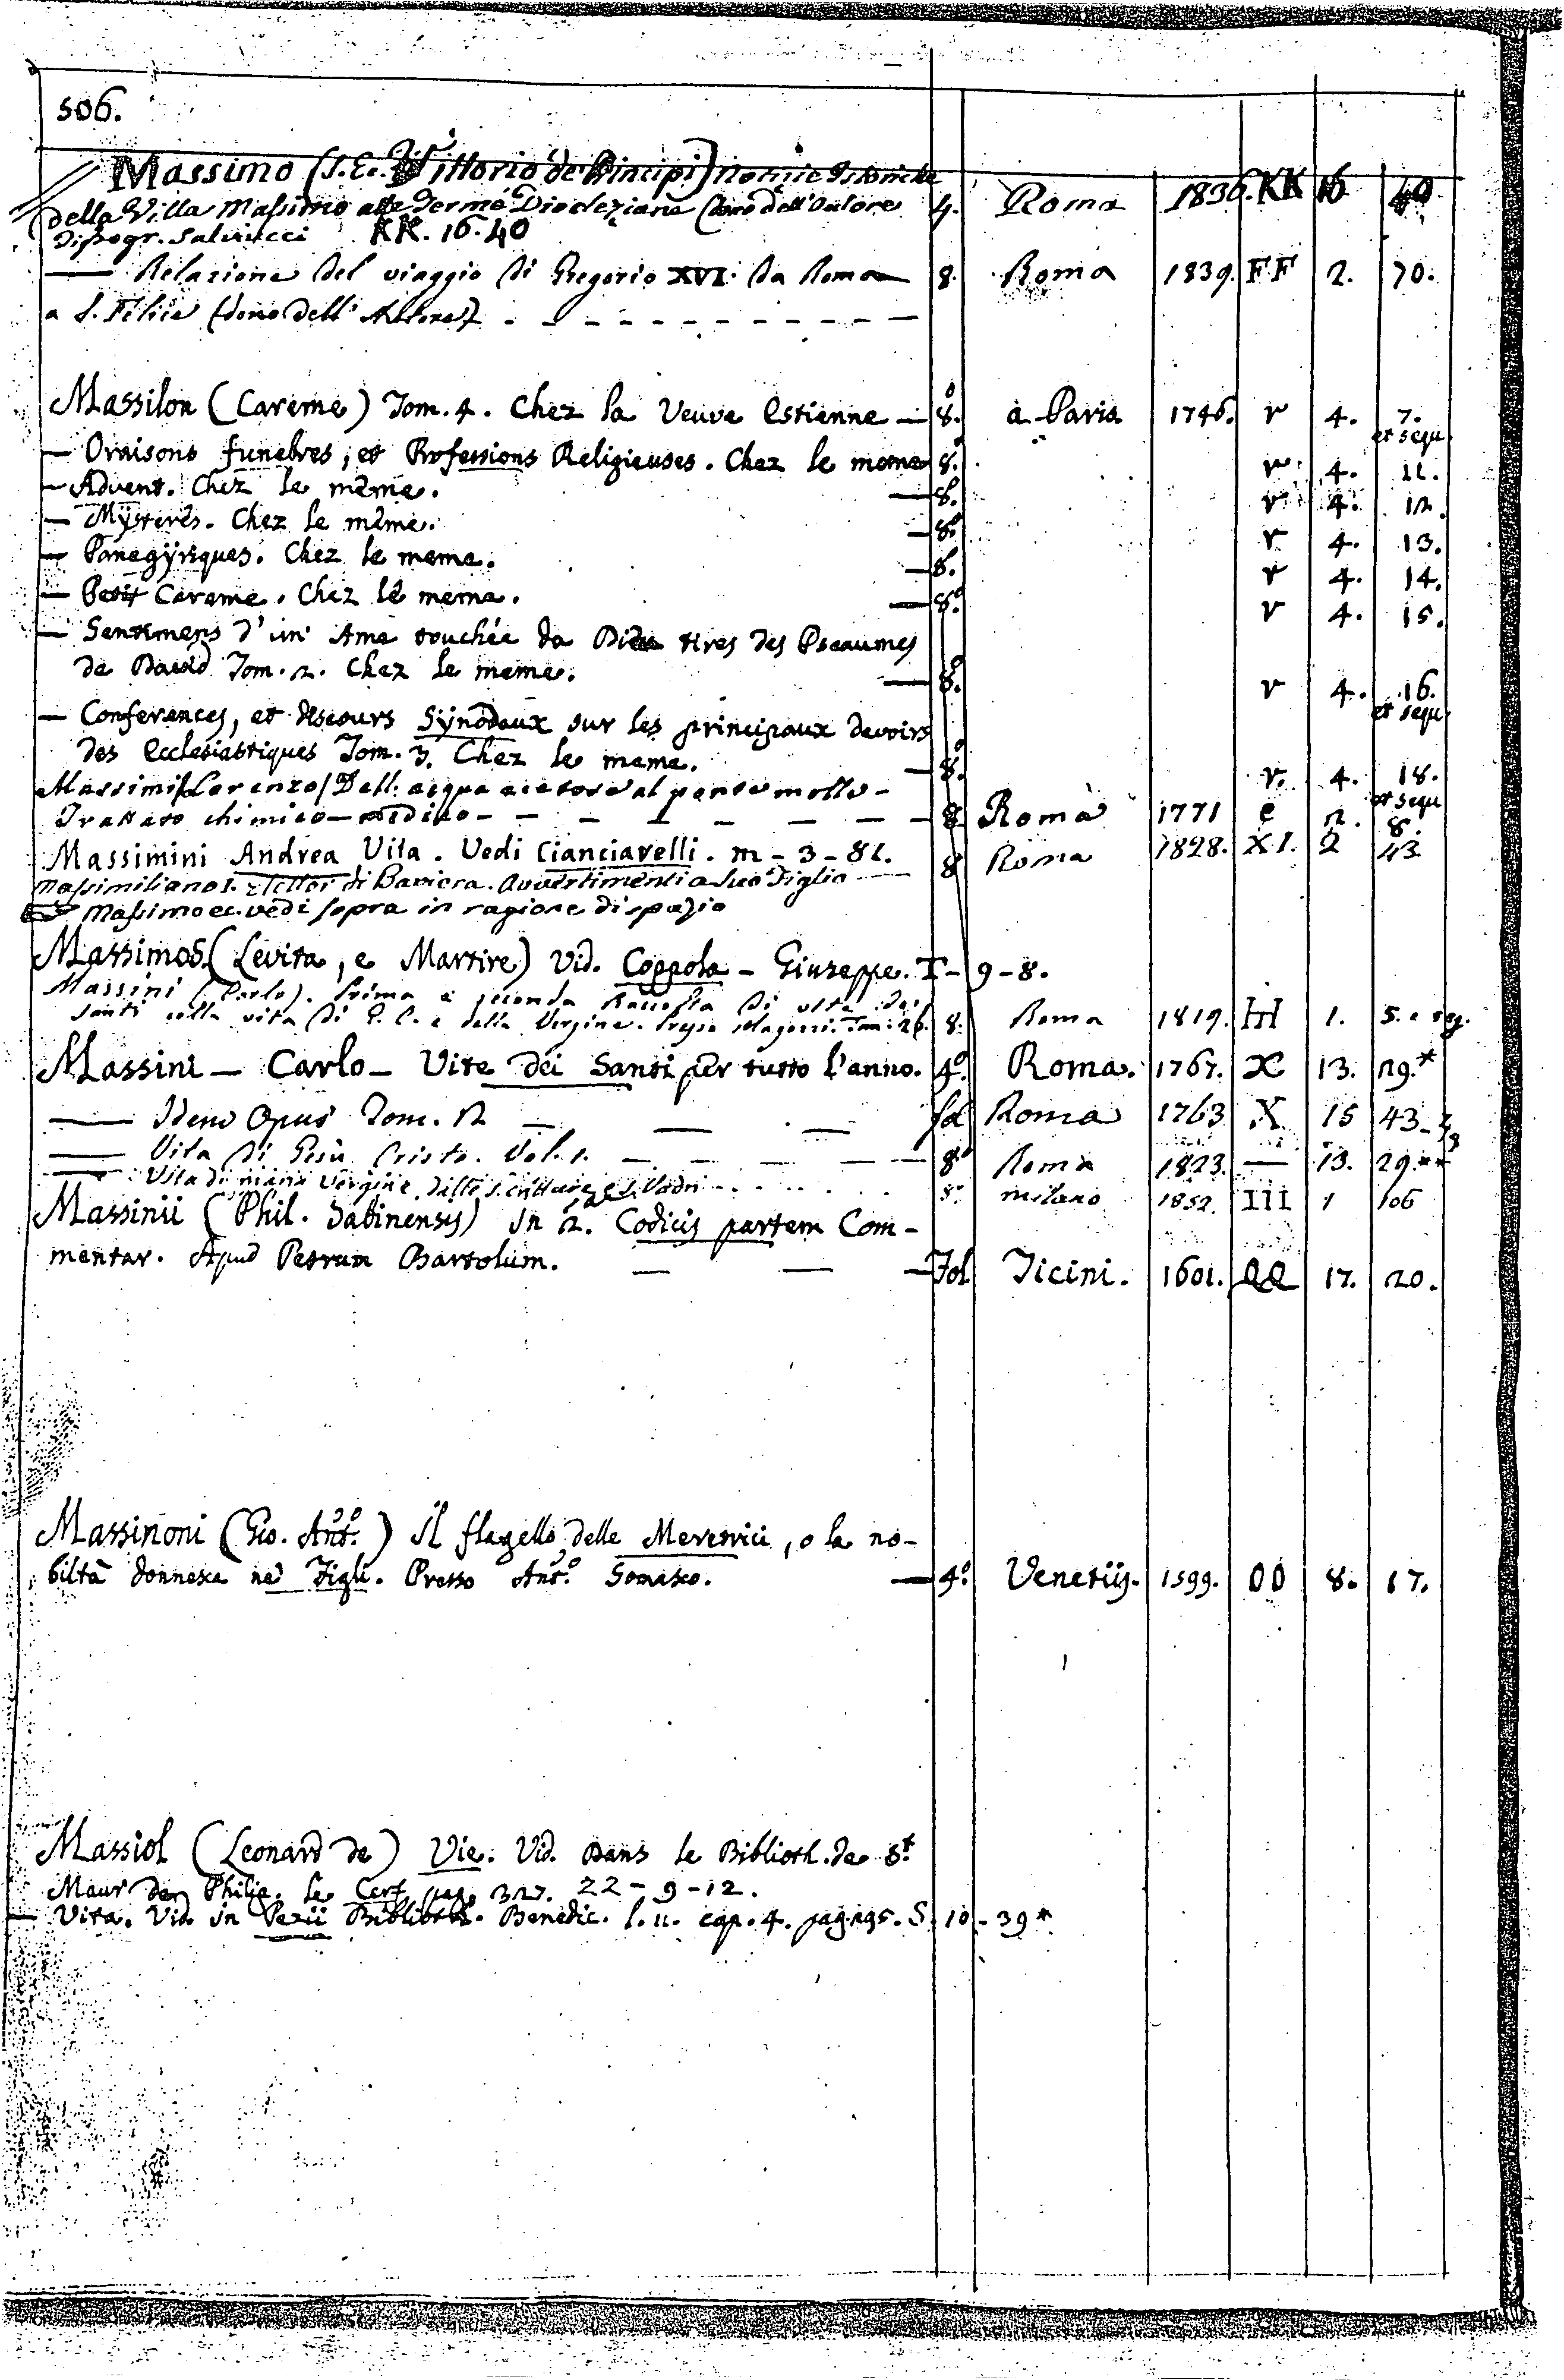 506.
Massimo (S. E. Vittorio de' Principi) notizie Istoriche
della Villa Massimo alle Terme Diocleziane (dono dell'Autore 4. Roma 1836. KK 16 40
Tipogr. Salviucci KK. 16. 40
— Relazione del viaggio di Gregorio XVI. da Roma — 8. Roma 1839. FF 2. 70.
a S. Felice (dono dell' Autore) - - - - - - - - - - - -
Massilon (Careme) Tom. 4. Chez la Veuve Estienne — 8.º a Paris 1746. r 4. 7.
et sequ
— Oraisons funebres, et Professions Religieuses. Chez le meme 8.º r 4. 11.
— Advent. Chez le même. — 8.º r 4. 12.
— Mysteres. Chez le même. — 8.º r 4. 13.
— Panegÿriques. Chez le meme. — 8. r 4. 14.
— Petit Careme. Chez le meme. — 8.º r 4. 15.
— Sentimens d'un Ame touchée da Dieu tires des Pseaumes
de David Tom. 2. Chez le meme. — 8.º r 4. 16.
et sequ.
— Conferences, et discours Sÿnodaux sur les principaux devoirs
des Ecclesiastiques Tom. 3. Chez le meme. — 8.º r. 4. 18.
et sequ
Massimi (Lorenzo) Dell. acqua acetosa al ponte mollo -
Trattato chimico-medico - - - - - - - 8 Roma 1771 e 2. 8.
Massimini Andrea Vita. Vedi Cianciarelli. m - 3 - 81.
Massimiliano I. Elettor di Baviera. Avvertimenti a suo Figlio — 8 Roma 1828. XI. 2 43
Massimo ec. vedi sopra in ragione di spazio
Massimo S. (Levita, e Martire) Vid. Coppola - Giuseppe. T - 9 - 8.
Massini (Carlo). Prima e seconda Raccolta di vite dei
Santi colla vita di G. C. e della Vergine. Presso Tom: 26. 8. Roma 1819. III 1. 5. e seg.
Massini — Carlo — Vite dei Santi per tutto l'anno. 4.º Roma. 1767. X 13. 29.*
— Idem Opus Tom. 12 — — — Roma 1763 X 15 43-
— Vita di Gesù Cristo. Vol. 1. — — — — 8º Roma 1823. — 13. 29.**
— Vita di Maria Vergine, dalle s. Scritture, e S. Padri . . . . 8.º Milano 1852. III 1 106
Massinii (Phil. Sabinensis) In 2. Codicis partem Com-
mentar. Apud Petrum Bartolum. — — — Fol Ticini. 1601. 17. 20.
Massinoni (Gio. Antº.) Il flagello delle Meretrici, o la no-
biltà donnesca ne' Figli. Presso Antº. Somasco. — 4.º Venetiis. 1599. OO 8. 17.
Massiol (Leonard de) Vie. Vid. Dans le Biblioth. de St.
Maur der Philip. le Cerf pag. 327. 22 - 9 - 12.
— Vita. Vid. in Pezii Biblioth. Benedic. l. 11. cap. 4. pag. 295. S 10 - 39*